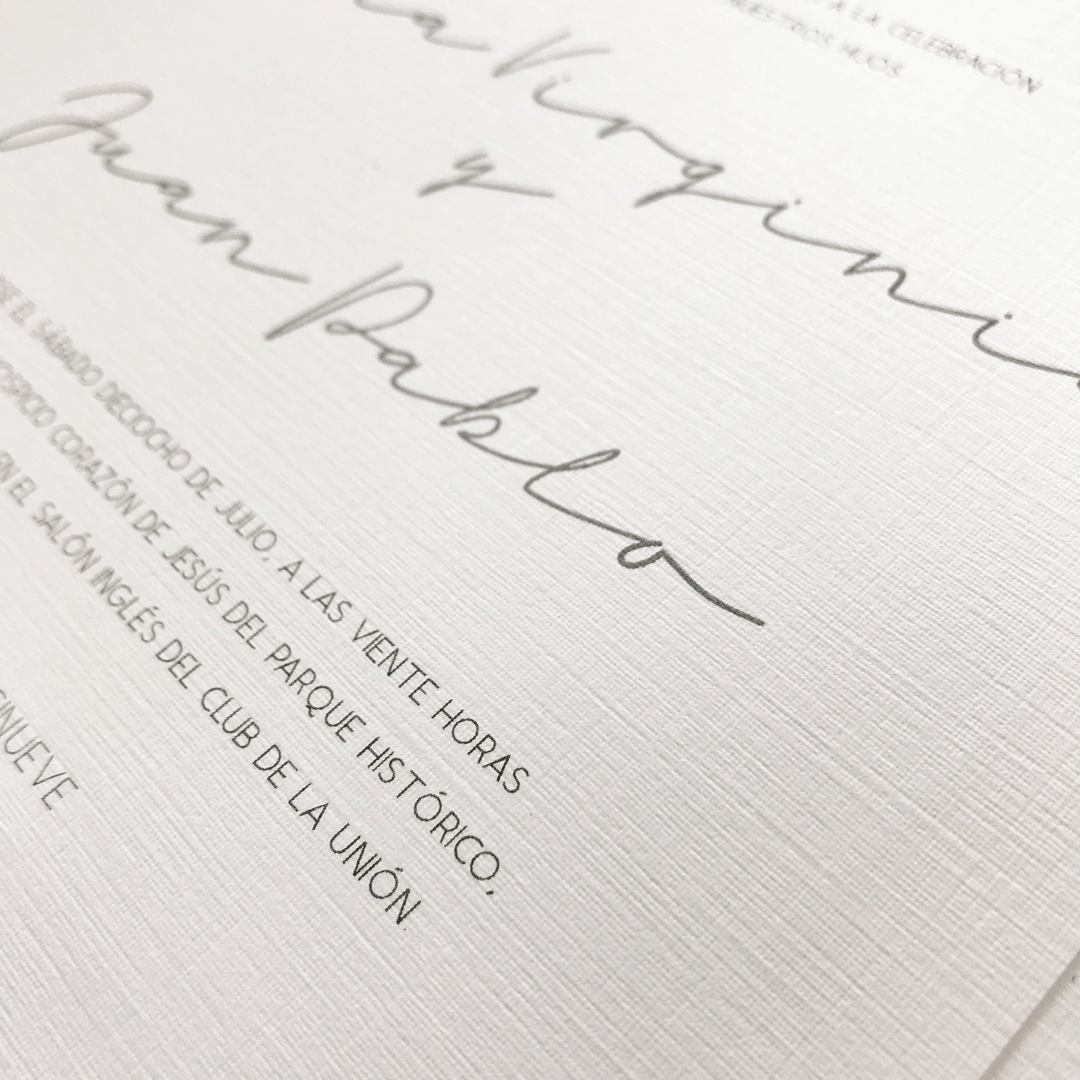 A LA CELEBRACIÓN
NUESTROS HIJOS
a Virginia
y
Juan Pablo
EL SÁBADO DECIOCHO DE JULIO, A LAS VIENTE HORAS
CORAZÓN DE JESÚS DEL PARQUE HISTÓRICO,
EN EL SALÓN INGLÉS DEL CLUB DE LA UNIÓN.
INUEVE